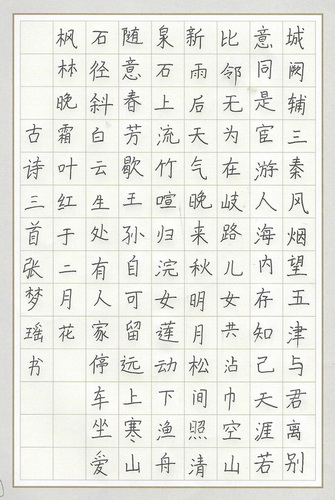 城阙辅三秦风烟望五津与君离别
意同是宦游人海内存知己天涯若
比邻无为在岐路儿女共沾巾空山
新雨后天气晚来秋明月松间照清
泉石上流竹喧归浣女莲动下渔舟
随意春芳歇王孙自可留远上寒山
石径斜白云生处有人家停车坐爱
枫林晚霜叶红于二月花
古诗三首张梦瑶书